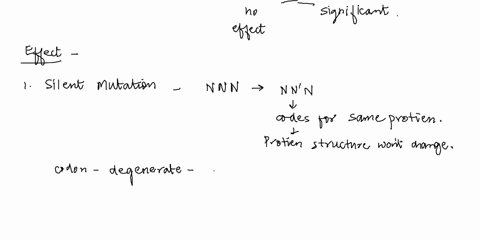 no significant.
effect
Effect -
1. Silent Mutation - NNN → NN'N
↓
codes for same protien.
↓
Protien structure won't change.
codon - degenerate -